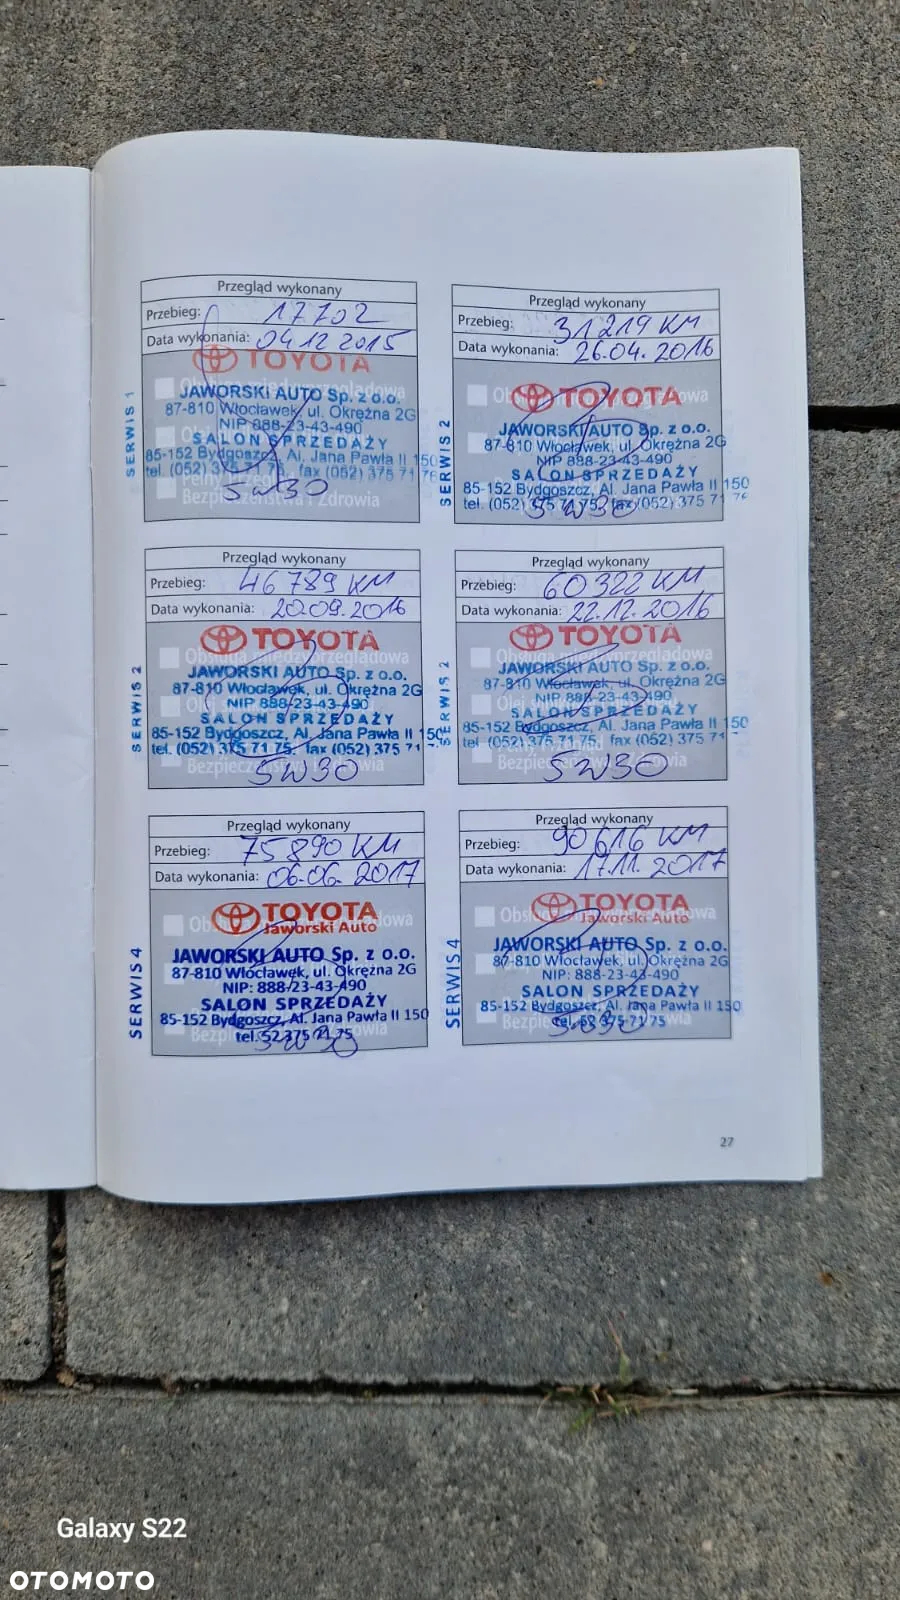 Przegląd wykonany
Przebieg: 17702
Data wykonania: 04.12 2015
TOYOTA
JAWORSKI AUTO Sp. z o.o.
87-810 Włocławek, ul. Okrężna 2G
NIP 888-23-43-490
SALON SPRZEDAŻY
85-152 Bydgoszcz, Al. Jana Pawła II 150
tel. (052) 375 71 76, fax (052) 375 71 76
Pełny Przegląd
Bezpieczeństwa i Zdrowia
5W30
SERWIS 1
Przegląd wykonany
Przebieg: 31219 KM
Data wykonania: 26.04. 2016
TOYOTA
JAWORSKI AUTO Sp. z o.o.
87-810 Włocławek, ul. Okrężna 2G
NIP 888-23-43-490
SALON SPRZEDAŻY
85-152 Bydgoszcz, Al. Jana Pawła II 150
tel. (052) 375 71 75, fax (052) 375 71 76
5W30
SERWIS 2
Przegląd wykonany
Przebieg: 46789 KM
Data wykonania: 20.09.2016
TOYOTA
Obsługa międzyprzeglądowa
JAWORSKI AUTO Sp. z o.o.
87-810 Włocławek, ul. Okrężna 2G
NIP 888-23-43-490
SALON SPRZEDAŻY
85-152 Bydgoszcz, Al. Jana Pawła II 150
tel. (052) 375 71 75, fax (052) 375 71
Bezpieczeństwa i Zdrowia
5W30
SERWIS 2
Przegląd wykonany
Przebieg: 60322 KM
Data wykonania: 22.12.2016
TOYOTA
Obsługa międzyprzeglądowa
JAWORSKI AUTO Sp. z o.o.
87-810 Włocławek, ul. Okrężna 2G
NIP 888-23-43-490
SALON SPRZEDAŻY
85-152 Bydgoszcz, Al. Jana Pawła II 150
tel. (052) 375 71 75, fax (052) 375 71
Pełny Przegląd
Bezpieczeństwa i Zdrowia
5W30
SERWIS 2
Przegląd wykonany
Przebieg: 75890 KM
Data wykonania: 06.06. 2017
TOYOTA
Jaworski Auto
JAWORSKI AUTO Sp. z o.o.
87-810 Włocławek, ul. Okrężna 2G
NIP: 888-23-43-490
SALON SPRZEDAŻY
85-152 Bydgoszcz, Al. Jana Pawła II 150
tel. 52 375 71 75
5W30
SERWIS 4
Przegląd wykonany
Przebieg: 90616 KM
Data wykonania: 17.11. 2017
TOYOTA
Jaworski Auto
JAWORSKI AUTO Sp. z o.o.
87-810 Włocławek, ul. Okrężna 2G
NIP: 888-23-43-490
SALON SPRZEDAŻY
85-152 Bydgoszcz, Al. Jana Pawła II 150
tel. 52 375 71 75
5W30
SERWIS 4
27
Galaxy S22
OTOMOTO